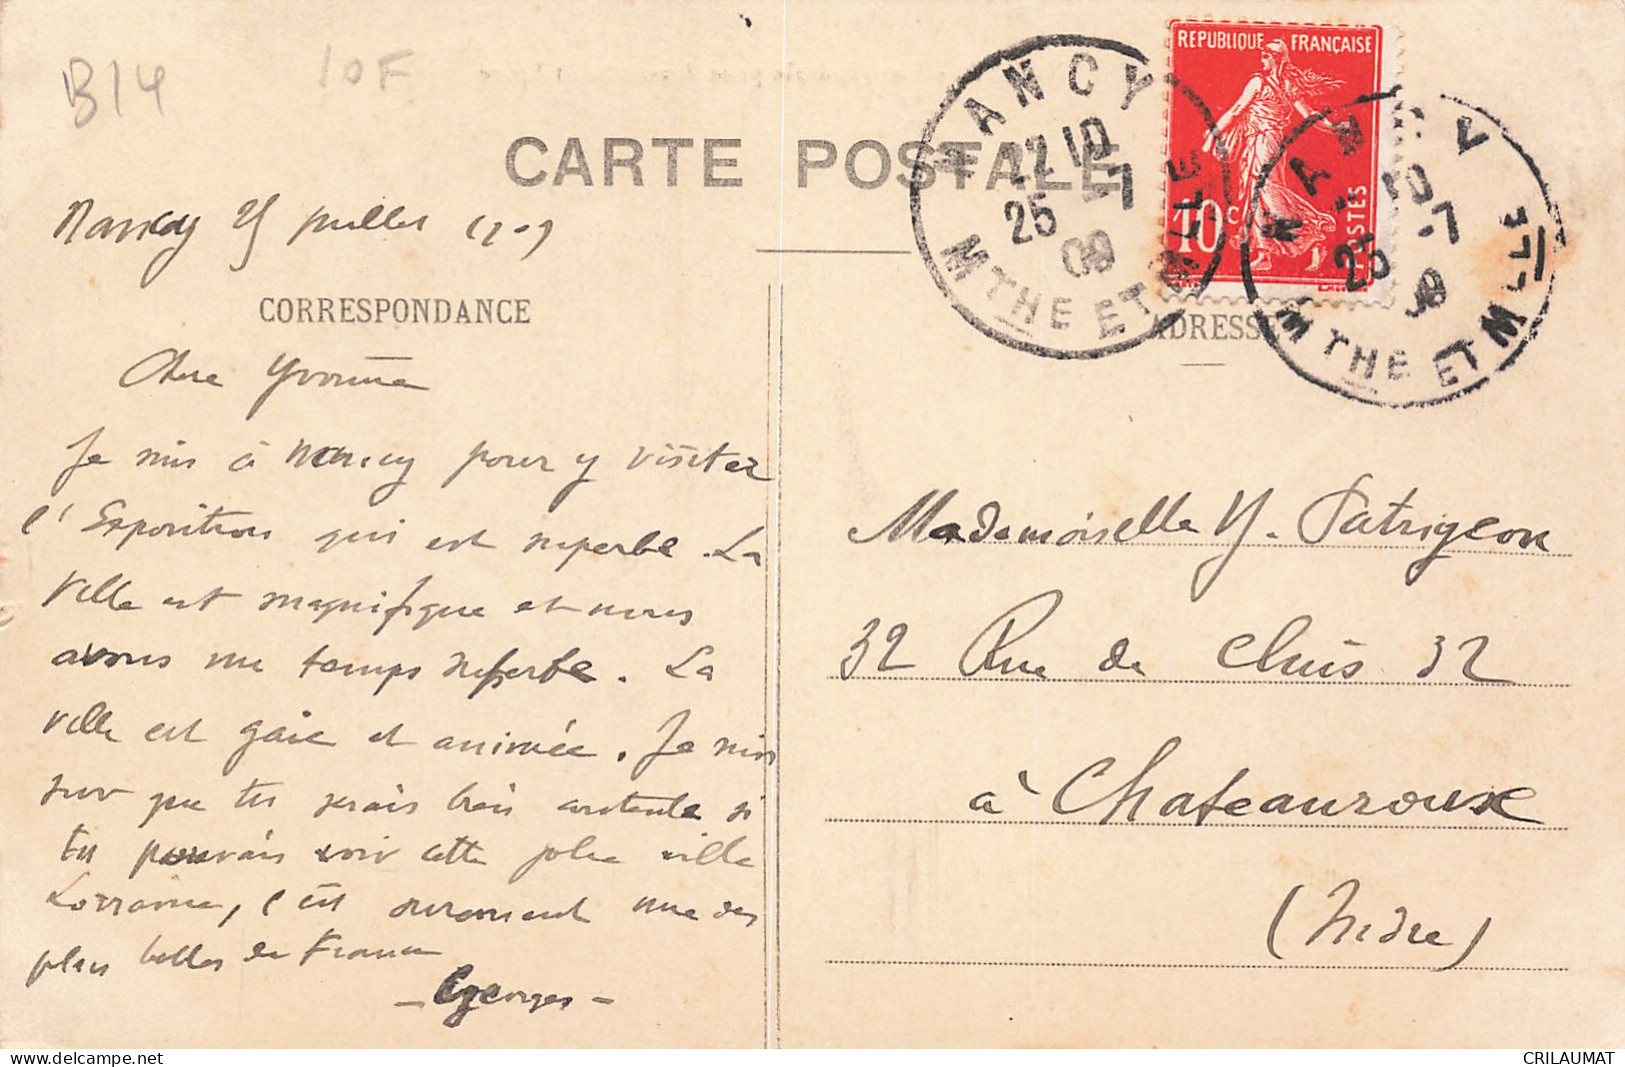 B14
10F
CARTE POSTALE
NANCY
22 10
25 -7
09
MTHE ET MLLE
REPUBLIQUE FRANÇAISE
10c
POSTES
NANCY
10
25 -7
09
MTHE ET MLLE
Nancy 25 juillet 1909
CORRESPONDANCE
ADRESSE
Chère Yvonne
Je suis à Nancy pour y visiter
l'Exposition qui est superbe. La
ville est magnifique et nous
avons un temps superbe. La
ville est gaie et animée. Je suis
sur que tu serais très contente si
tu pouvais voir cette jolie ville
Lorraine, c'est surement une des
plus belles de France
- Georges -
Mademoiselle Y. Patrigeon
32 Rue de Cluis 32
à Chateauroux
(Indre)
CRILAUMAT